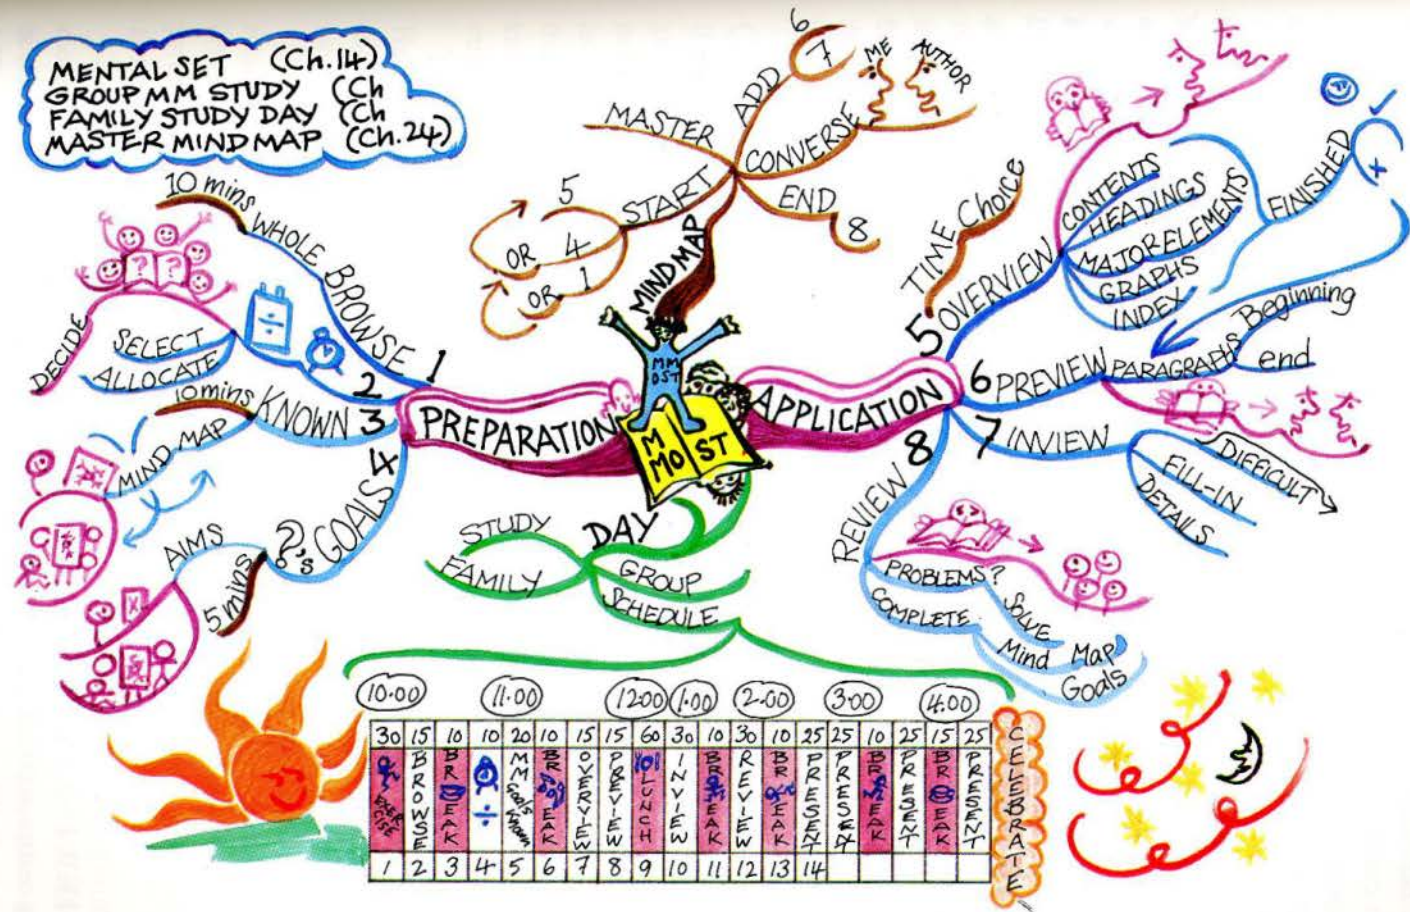 MENTAL SET (Ch.14)
GROUP MM STUDY (Ch
FAMILY STUDY DAY (Ch
MASTER MIND MAP (Ch.24)
MM
OST
M
MO ST
MIND MAP
MASTER
ADD
6
7
CONVERSE
ME
AUTHOR
END
8
START
5
OR 4
OR 1
PREPARATION
1
BROWSE
WHOLE
10 mins
2
? ?
DECIDE
SELECT
ALLOCATE
÷
3
KNOWN
10 mins
MIND MAP
4
GOALS
?'s
5 mins
AIMS
APPLICATION
TIME Choice
5 OVERVIEW
CONTENTS
HEADINGS
MAJOR ELEMENTS
GRAPHS
INDEX
FINISHED
✓
+
6 PREVIEW
PARAGRAPHS
Beginning
end
7 INVIEW
DIFFICULT
FILL-IN
DETAILS
8
REVIEW
PROBLEMS?
SOLVE
COMPLETE
Mind Map
Goals
DAY
STUDY
FAMILY
GROUP
SCHEDULE
10·00 11·00 12·00 1·00 2·00 3·00 4·00
30 15 10 10 20 10 15 15 60 30 10 30 10 25 25 10 25 15 25
EXERCISE
BROWSE
BREAK
÷
MM Goals Known
BREAK
OVERVIEW
PREVIEW
LUNCH
INVIEW
BREAK
REVIEW
BREAK
PRESENT
PRESENT
BREAK
PRESENT
BREAK
PRESENT
1 2 3 4 5 6 7 8 9 10 11 12 13 14
CELEBRATE